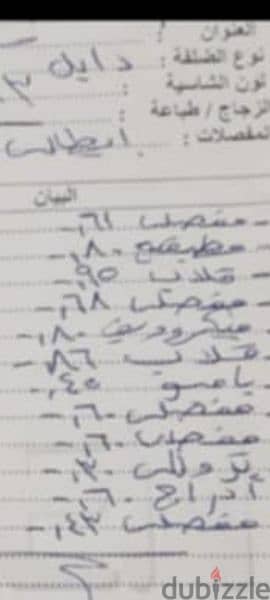 العنوان :
نوع الضلفة : دابل
لون الشاسية : ٣
الزجاج / طباعة :
المفصلات : ايطالى
البيان
- مفصلى ٦١,-
- مطبقيه ٨٠,-
- قلاب ٩٥,-
- مفصلى ٦٨,-
- ميكروويف ٨٠,-
- قلاب ٨٦,-
- ٤٥,-
- مفصلى ٦٠,-
- مفصلى ٦٠,-
- ٣٠,-
- أدراج ٦٠,-
- مفصلى ٤٣,-
dubizzle